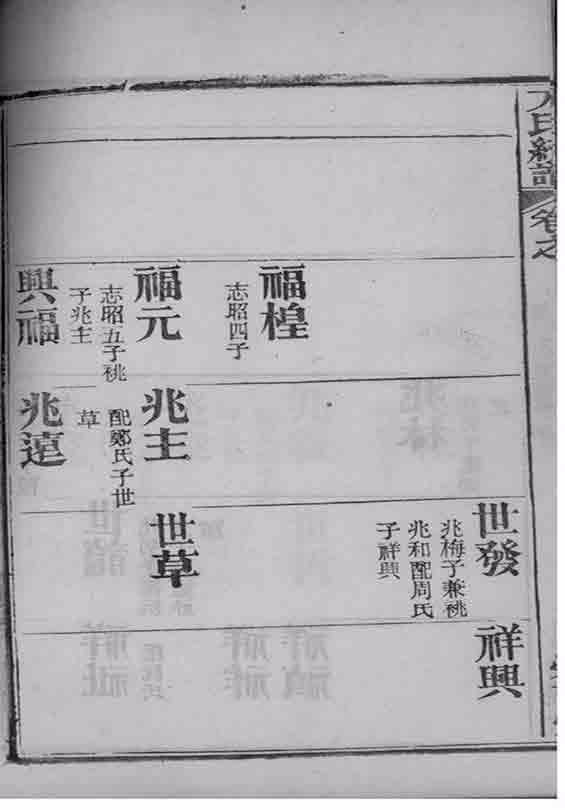 氏統譜
卷之
世發
兆梅子兼祧
兆和配周氏
子祥興
祥興
福楻
志昭四子
福元
志昭五子祧
子兆主
兆主
配鄭氏子世
草
世草
興福
兆遠